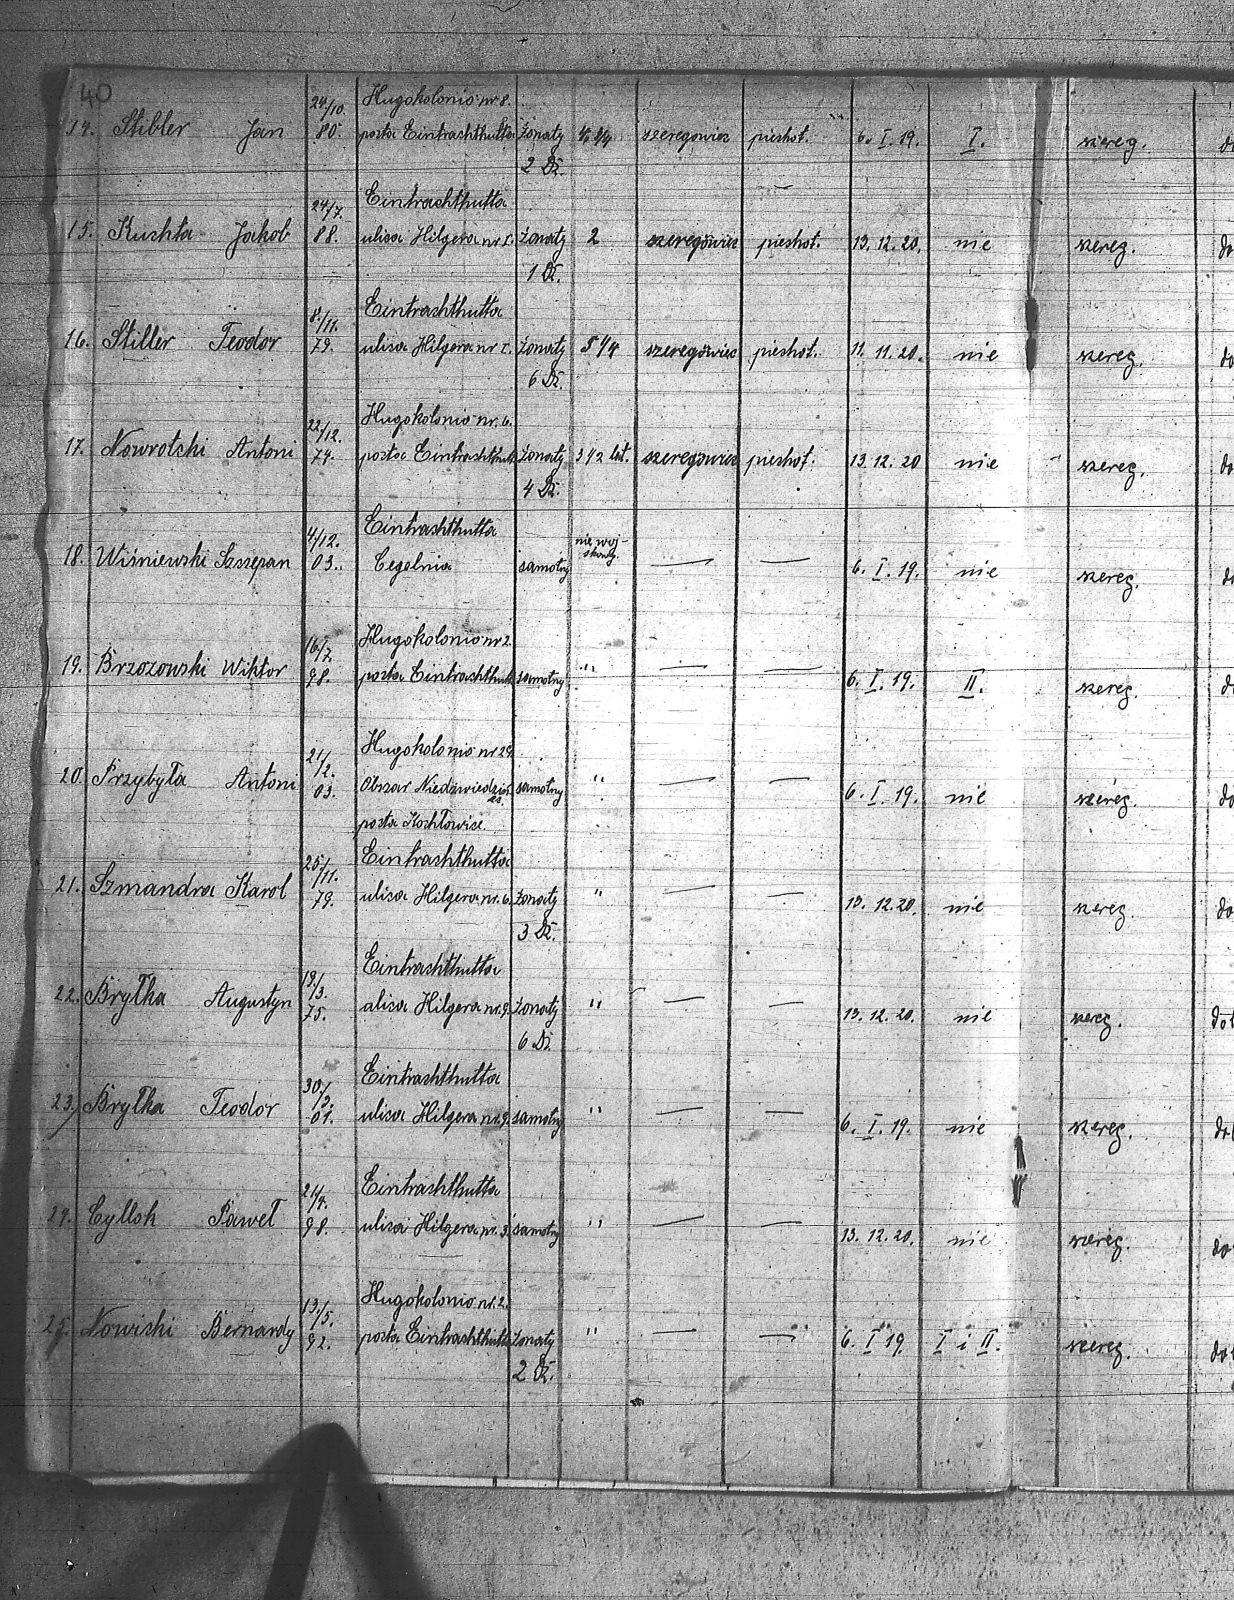 40
24/10. Hugokolonio nr 8.
14. Stibler Jan 80. posta Eintrachthutta żonaty szeregowiec piechot. 6. I. 19. I. szereg.
2 Dz.
24/7. Eintrachthutta
15. Kuchta Jakob 88. ulica Hilgera nr 5. żonaty 2 szeregowiec piechot. 13. 12. 20. nie szereg. do
1 Dz.
8/11. Eintrachthutta
16. Stiller Teodor 79. ulica Hilgera nr 5. żonaty 5 1/4 szeregowiec piechot. 11. 11. 20. nie szereg. do
6 Dz.
22/12. Hugokolonio nr. 6.
17. Nowrotski Antoni 74. posta Eintrachthut. żonaty 3 1/2 lat. szeregowiec piechot. 13. 12. 20 nie szereg. do
4 Dz.
4/12. Eintrachthutta nie woj-
18. Wiśniewski Szczepan 03. Cegelnia samotny skowy. — — 6. I. 19. nie szereg. do
16/7. Hugokolonio nr 2.
19. Brzozowski Wiktor 98. posta Eintrachthut. samotny " — — 6. I. 19. II. szereg. do
21/2. Hugokolonio nr 29.
20. Przybyła Antoni 03. Obszar samotny " — — 6. I. 19. nie szereg. do
posta Kochłowice.
25/11. Eintrachthutta
21. Szmandra Karol 79. ulica Hilgera nr. 6. żonaty " — — 13. 12. 20. nie szereg. do
3 Dz.
Eintrachthutta
22. Bryłka Augustyn 75. ulica Hilgera nr. 9. żonaty " — — 13. 12. 20. nie szereg. do
6 Dz.
Eintrachthutta
23. Bryłka Teodor 01. ulica Hilgera nr. 9. samotny " — — 6. I. 19. nie szereg. do
Eintrachthutta
24. Cylloh Paweł 98. ulica Hilgera nr. 3. samotny " — — 13. 12. 20. nie szereg. do
13/5. Hugokolonio nr. 2.
25. Nowicki Bernardy 92. posta Eintrachthutta żonaty " — — 6. I 19. I i II. szereg. do
2 Dz.